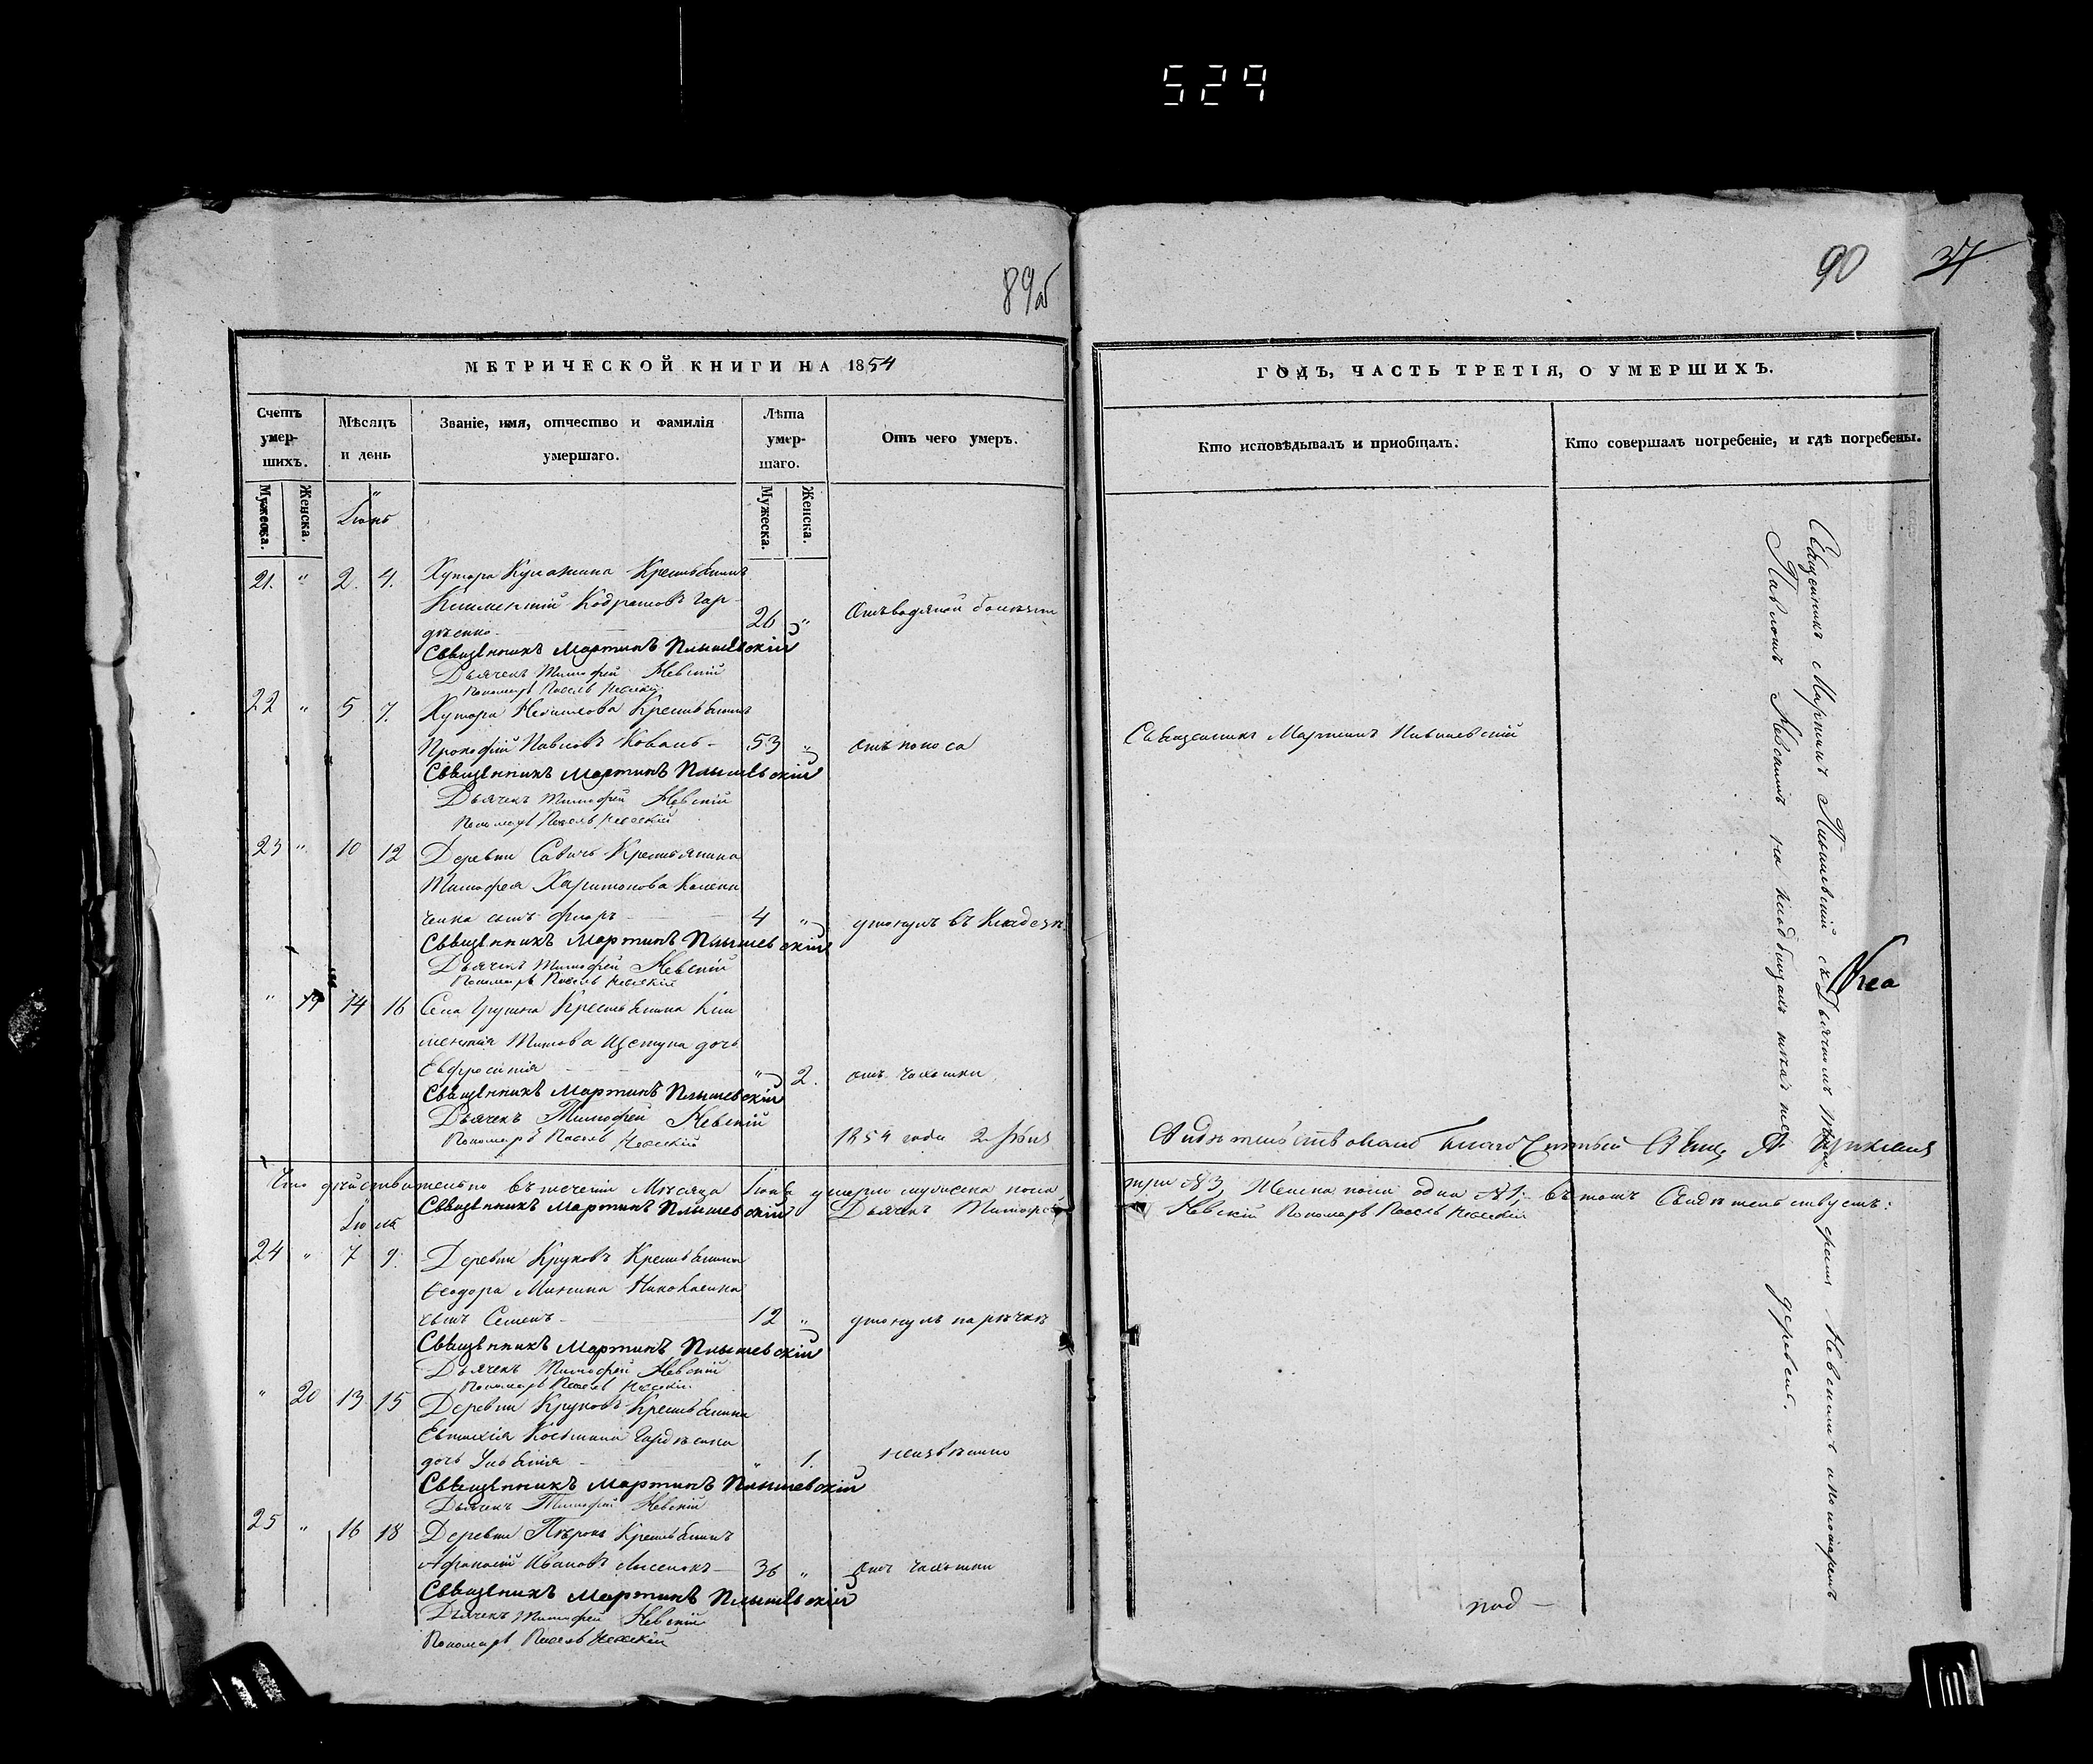 529
89об
90 37
МЕТРИЧЕСКОЙ КНИГИ НА 1854
Счетъ умершихъ.
Мѣсяцъ и день
Званіе, имя, отчество и фамилія
умершаго.
Лѣта умершаго.
Отъ чего умеръ.
Мужеска.
Женска.
Мужеска.
Женска.
Іюнь
21. " 2. 4. Хутора Крестьянинъ
Климентій Кодратовъ Гор-
дѣенко 26 " Отъ водяной болѣзни
Священникъ Мартинъ Плышевскій
Дьячекъ Тимофей Невскій
Пономарь Павелъ Невскій
22 " 5 7. Хутора Крестьянинъ
Прокофій Павловъ Коваль 53 " отъ поноса
Священникъ Мартинъ Плышевскій
Дьячекъ Тимофей Невскій
Пономарь Павелъ Невскій
23 " 10 12 Деревни Савичъ Крестьянина
Тимофея Харитонова
сынъ Флоръ 4 " утонулъ въ Кладезѣ
Священникъ Мартинъ Плышевскій
Дьячекъ Тимофей Невскій
Пономарь Павелъ Невскій
" 19 14 16 Села Крестьянина Кли
ментія Титова Щетуна дочь
Евфросинія " 2. отъ чахотки
Священникъ Мартинъ Плышевскій
Дьячекъ Тимофей Невскій
Пономарь Павелъ Невскій
1854 года 2
Что дѣйствительно въ теченіи Мѣсяца Іюня умерло мужеска пола
Священникъ Мартинъ Плышевскій Дьячекъ Тимофей
Іюль
24 " 7 9. Деревни Круковъ Крестьянина
Ѳеодора Минина Николаенка
сынъ Семенъ 12 " утонулъ на рѣчкѣ
Священникъ Мартинъ Плышевскій
Дьячекъ Тимофей Невскій
Пономарь Павелъ Невскій
" 20 13 15 Деревни Круковъ Крестьянина
Евтихія Гордѣенка
дочь " 1. неизвѣстно
Священникъ Мартинъ Плышевскій
Дьячекъ Тимофей Невскій
25 " 16 18 Деревни Крестьянинъ
Афанасій Ивановъ Лисенокъ 36 " отъ чахотки
Священникъ Мартинъ Плышевскій
Дьячекъ Тимофей Невскій
Пономарь Павелъ Невскій
ГОДЪ, ЧАСТЬ ТРЕТІЯ, О УМЕРШИХЪ.
Кто исповѣдывалъ и пріобщалъ.
Кто совершалъ погребеніе, и гдѣ погребены.
Священникъ Мартинъ Плышевскій
Священникъ Мартинъ Плышевскій съ Дьячкомъ Невскимъ и пономаремъ
Павломъ Невскимъ на кладбищахъ деревень.
Свидѣтельствовалъ благочинный Свящ.
три №3, Женска пола одна №1; въ томъ Свидѣтельствуетъ:
Невскій Пономарь Павелъ Невскій